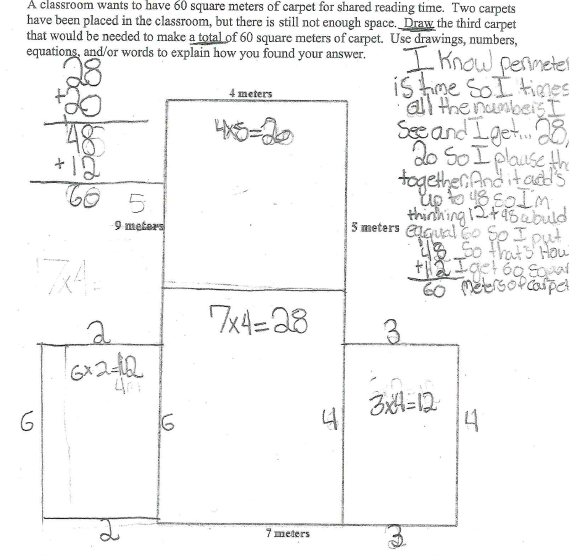 A classroom wants to have 60 square meters of carpet for shared reading time. Two carpets
have been placed in the classroom, but there is still not enough space. Draw the third carpet
that would be needed to make a total of 60 square meters of carpet. Use drawings, numbers,
equations, and/or words to explain how you found your answer.
28
+20
48
+12
60
I Know perimeter
is time So I times
all the numbers I
See and I get... 28,
20 So I plause th
together. And it add's
up to 48 so I'm
thinhing 12+48 wbuld
eaqual 60 So I put
48 So that's How
+12 I get 60 Sqaar
60 meters of carpet
4 meters
4x5=20
5
9 meters
5 meters
7x4=
7x4=28
2
3
6x2=12
4
3x4=12
6
6
4
4
2
7 meters
3